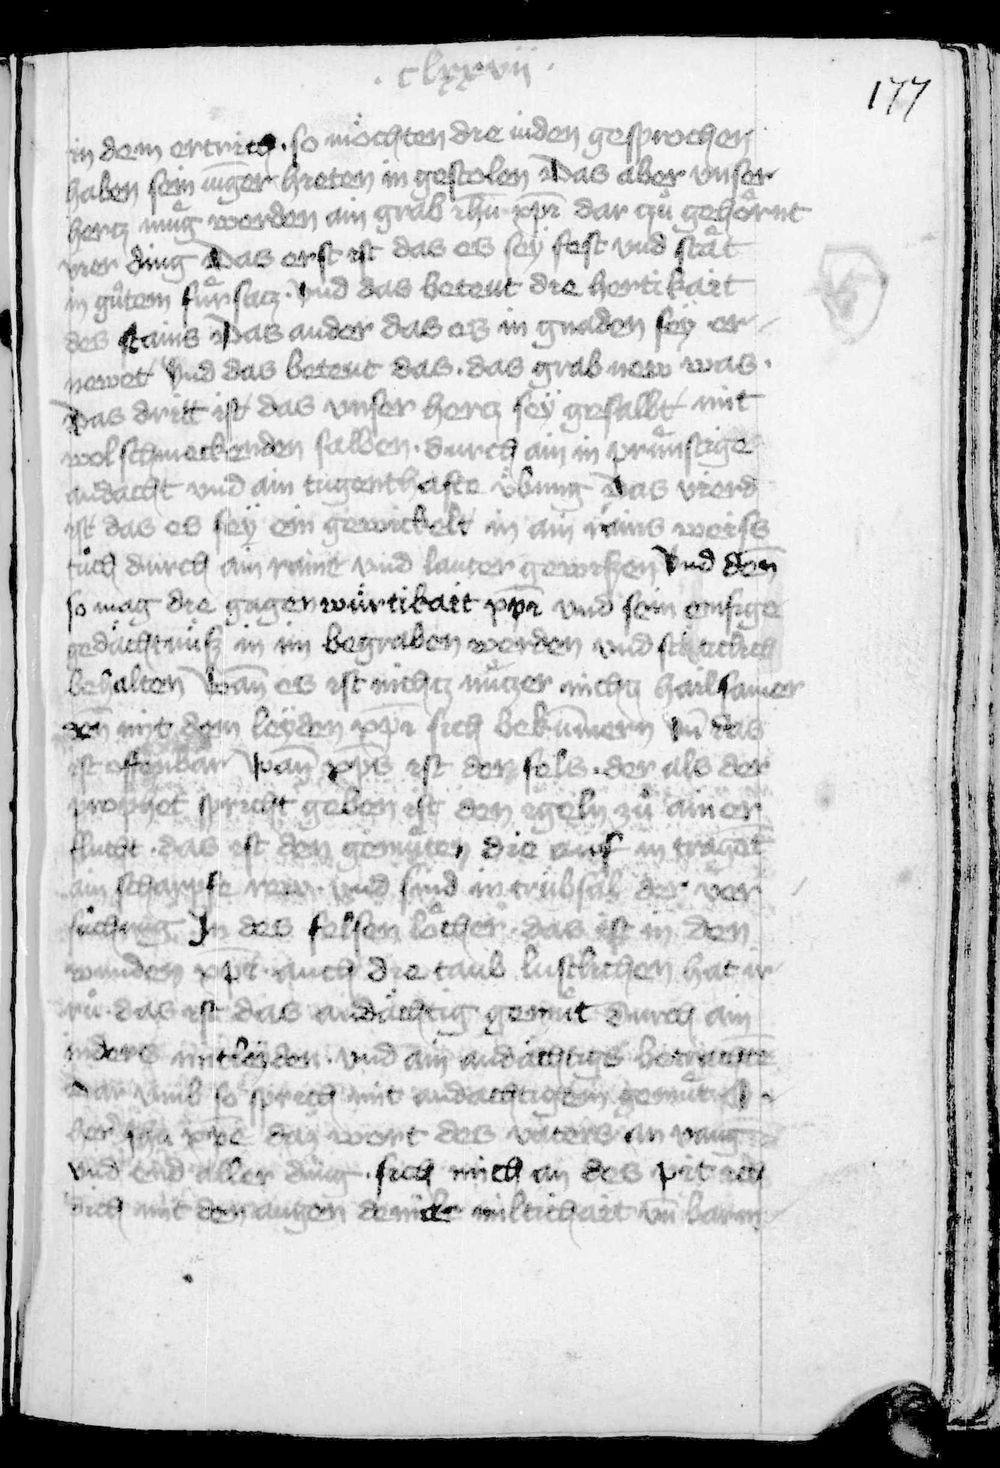 · clxxvii ·
177
in dem ertrich · so möchten die iuden gesprochen
haben sein iūger hieten in gestolen Das aber vnser
hertz müg werden ain grab ihū xpi dar zů gehörnt
vier ding Das erst ist das es sey fest vnd stät
in gůtem für satz · vnd das beteut die hertikait
des stains Das ander das es in gnaden sey er-
newet vnd das beteut das · das grab new was ·
Das dritt ist das vnser hertz sey gesalbt mit
wol schmeckenden salben · durch ain in prünstige
andacht vnd ain tugenthafte übung Das vierd
ist das es sey ein gewickelt in ain rains weiss
tůch durch ain raine vnd lauter gewissen Vnd den̄
so mag die gagenwürtikait xpi vnd sein emsige
gedächtnüß in im begraben werden vnd
behalten Wan̄ es ist nichtz nützer nichtz hailsamer
den̄ mit dem leyden xpi sich bekūmern vn̄ das
ist offenbar Wan̄ xps ist der fels · der als der
prophet spricht geben ist den igeln zů ainer
flucht · das ist den gemüten die auf in tragent
ain scharpfe rew · vnd sind in trübsal der ver
sůchung In des felsen löcher · das ist in den
wunden xpi · auch die taub lustlichen hat ir
rů · das ist das andächtig gemüt durch ain
mitleyden · vnd ain andächtigs betrachtē
Dar vmb so sprich mit andächtigem gemüt
her ihū xpe das wort des vaters an vang
vnd end aller ding · sich mich an des pit ich
dich mit den augen deiner miltichait vn̄ barm-